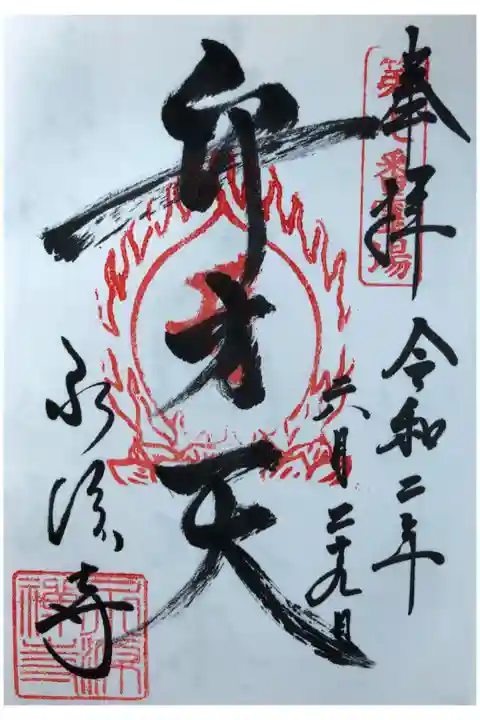 奉拝
令和二年
六月二十九日
弁才天
永源寺